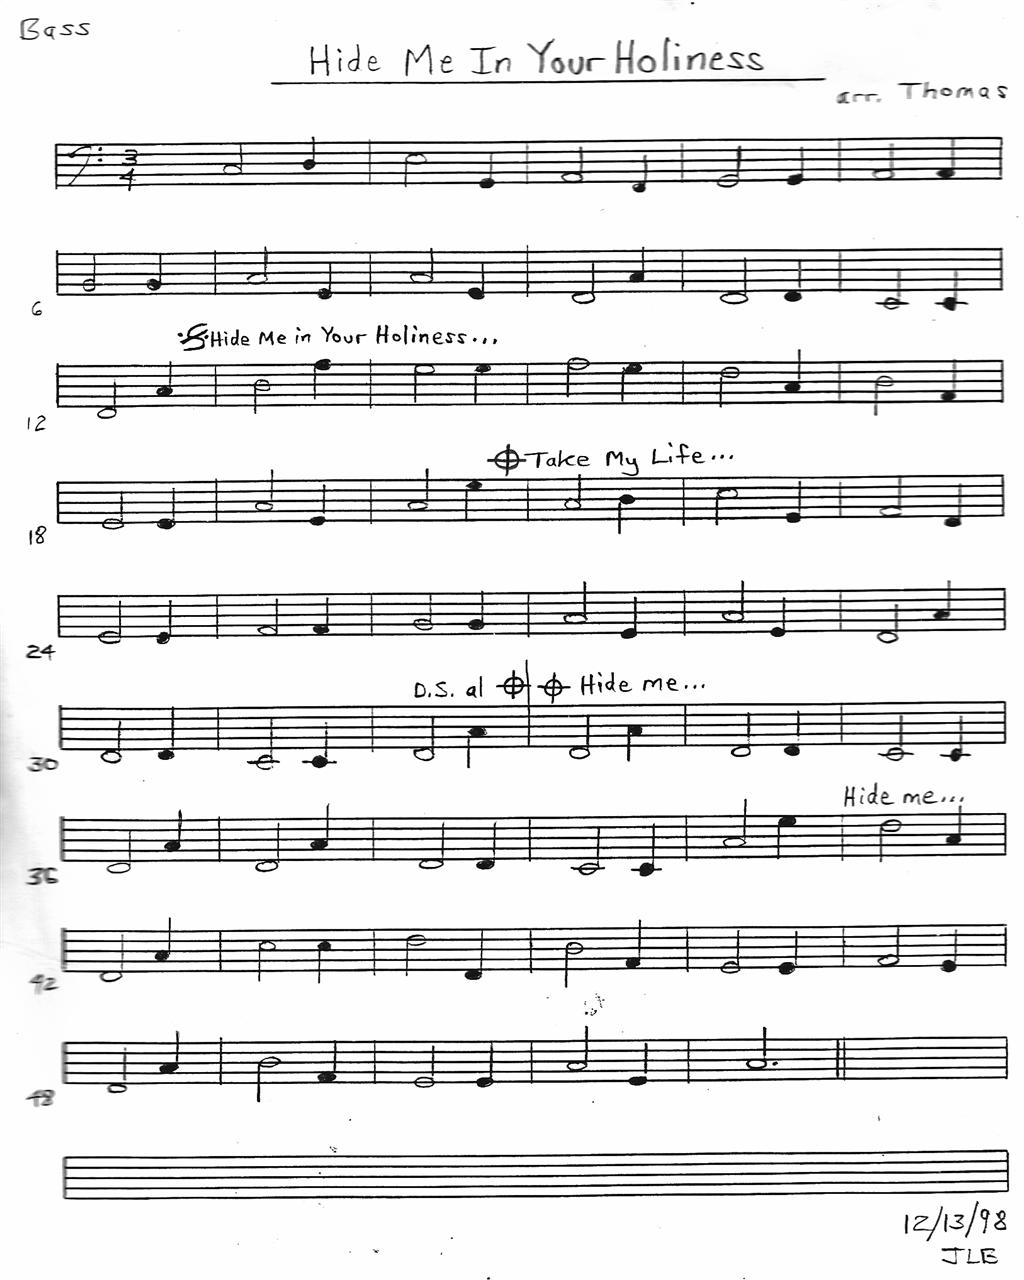 Bass
Hide Me In Your Holiness
arr. Thomas
3
4
6
Hide Me in Your Holiness...
12
Take My Life...
18
24
D.S. al Hide me...
30
Hide me...
36
42
48
12/13/98
JLE